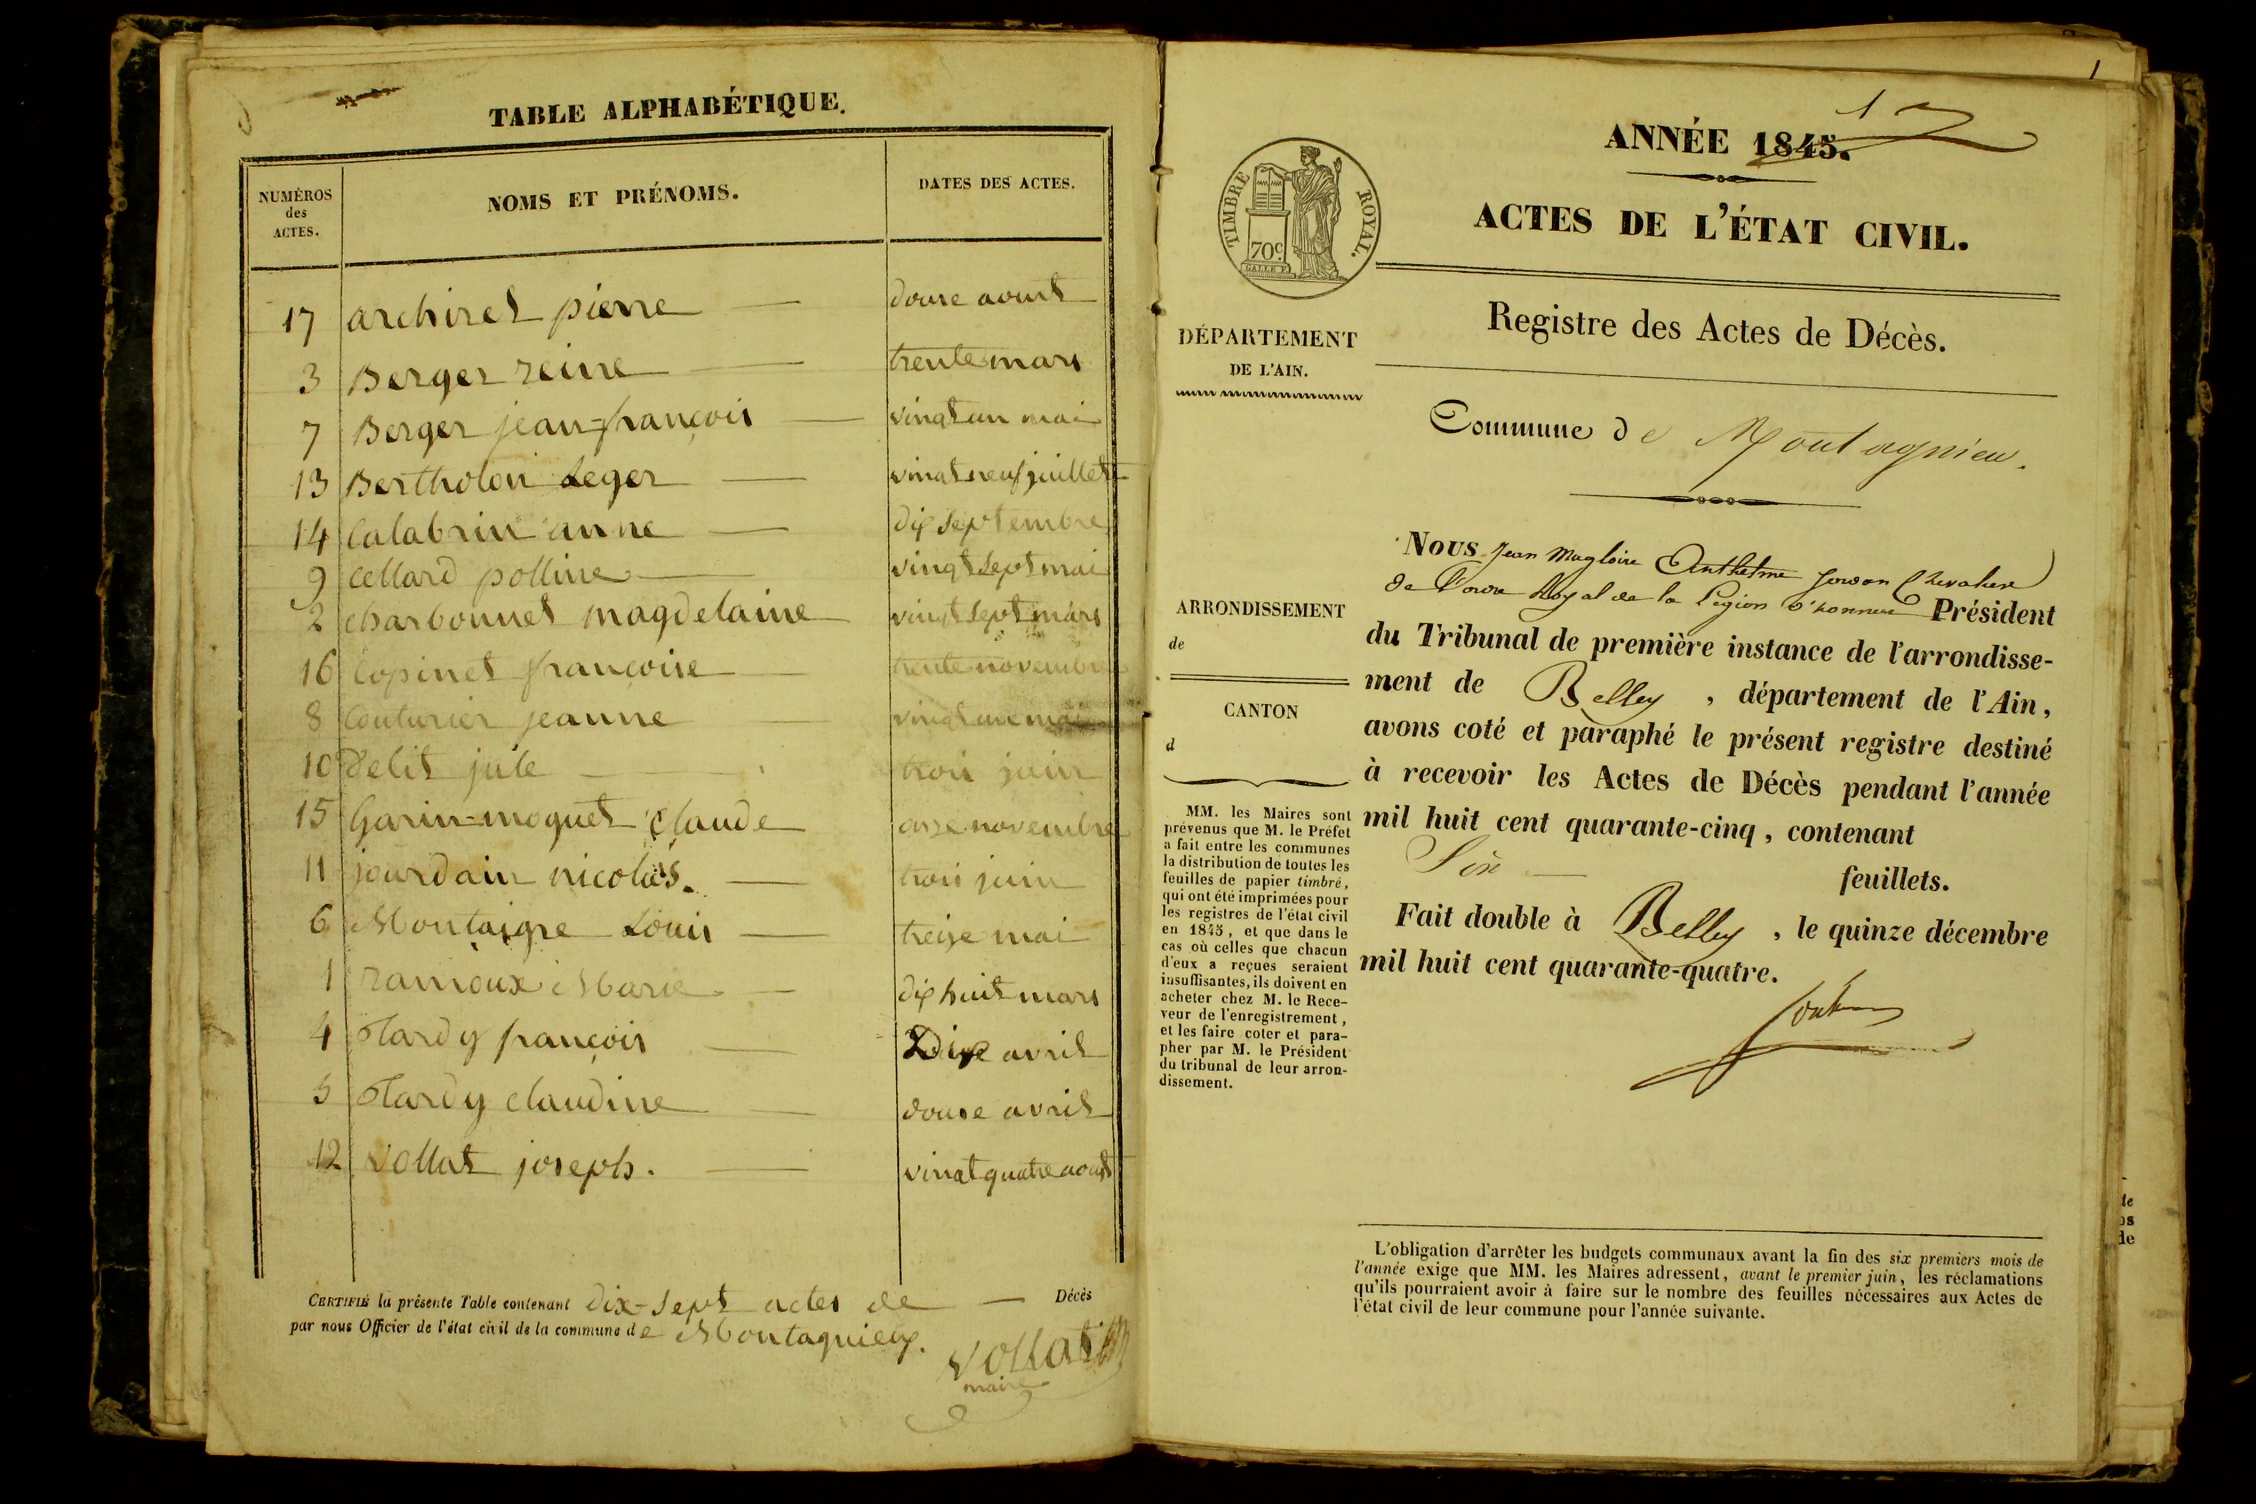 TABLE ALPHABÉTIQUE.
NUMÉROS
des
ACTES.
NOMS ET PRÉNOMS.
DATES DES ACTES.
17 archiret pierre — douse aoust
3 Berger reine — trente mars
7 Berger jean=françois — vingt un mai
13 Bertholon Leger — vingt neuf juillet
14 Calabrin anne — dix septembre
9 Cellard polline — vingt sept mai
2 charbonnet magdelaine vingt sept mars
16 Copinet françoise — trente novembre
8 Couturier jeanne — vingt un mai
10 Delit jule — trois juin
15 Garin=moquet Claude onze novembre
11 jourdain nicolas. — trois juin
6 Montaigne Louis — treize mai
1 ramoux Marie — dix huit mars
4 Tardy françois — Dix avril
5 Tardy claudine — douse avril
12 Vollat joseph. — vingt quatre aoust
CERTIFIÉ la présente Table contenant dix-sept actes de — Décès
par nous Officier de l'état civil de la commune de Montagnieu.
Vollat
maire
1
ANNÉE 1845.
TIMBRE ROYAL.
70c
ACTES DE L'ÉTAT CIVIL.
Registre des Actes de Décès.
DÉPARTEMENT
DE L'AIN.
Commune de Montagnieu.
ARRONDISSEMENT
de
CANTON
d
MM. les Maires sont
prévenus que M. le Préfet
a fait entre les communes
la distribution de toutes les
feuilles de papier timbré,
qui ont été imprimées pour
les registres de l'état civil
en 1845, et que dans le
cas où celles que chacun
d'eux a reçues seraient
insuffisantes, ils doivent en
acheter chez M. le Rece-
veur de l'enregistrement,
et les faire coter et para-
pher par M. le Président
du tribunal de leur arron-
dissement.
Nous Jean Magloire Anthelme Chevalier
de l'ordre Royal de la Légion d'honneur Président
du Tribunal de première instance de l'arrondisse-
ment de Belley, département de l'Ain,
avons coté et paraphé le présent registre destiné
à recevoir les Actes de Décès pendant l'année
mil huit cent quarante-cinq, contenant
Six — feuillets.
Fait double à Belley, le quinze décembre
mil huit cent quarante-quatre.
L'obligation d'arrêter les budgets communaux avant la fin des six premiers mois de
l'année exige que MM. les Maires adressent, avant le premier juin, les réclamations
qu'ils pourraient avoir à faire sur le nombre des feuilles nécessaires aux Actes de
l'état civil de leur commune pour l'année suivante.